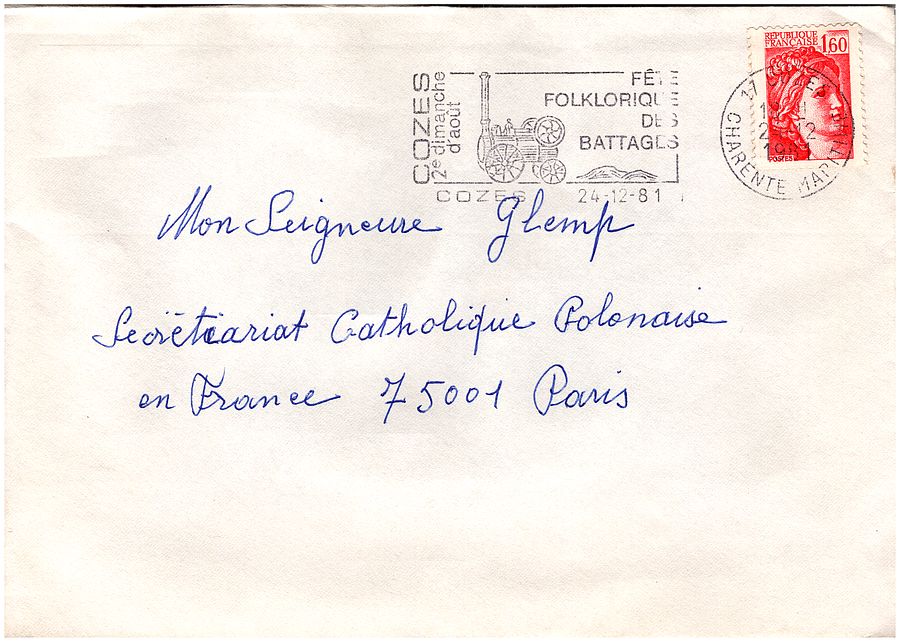 RÉPUBLIQUE
FRANÇAISE 1,60
POSTES
COZES
2e dimanche
d'août
FÊTE
FOLKLORIQUE
DES
BATTAGES
COZES 24-12-81
17 COZES
CHARENTE MARITIME
Mon Seigneure Glemp
Secrétariat Catholique Polonaise
en France 75001 Paris